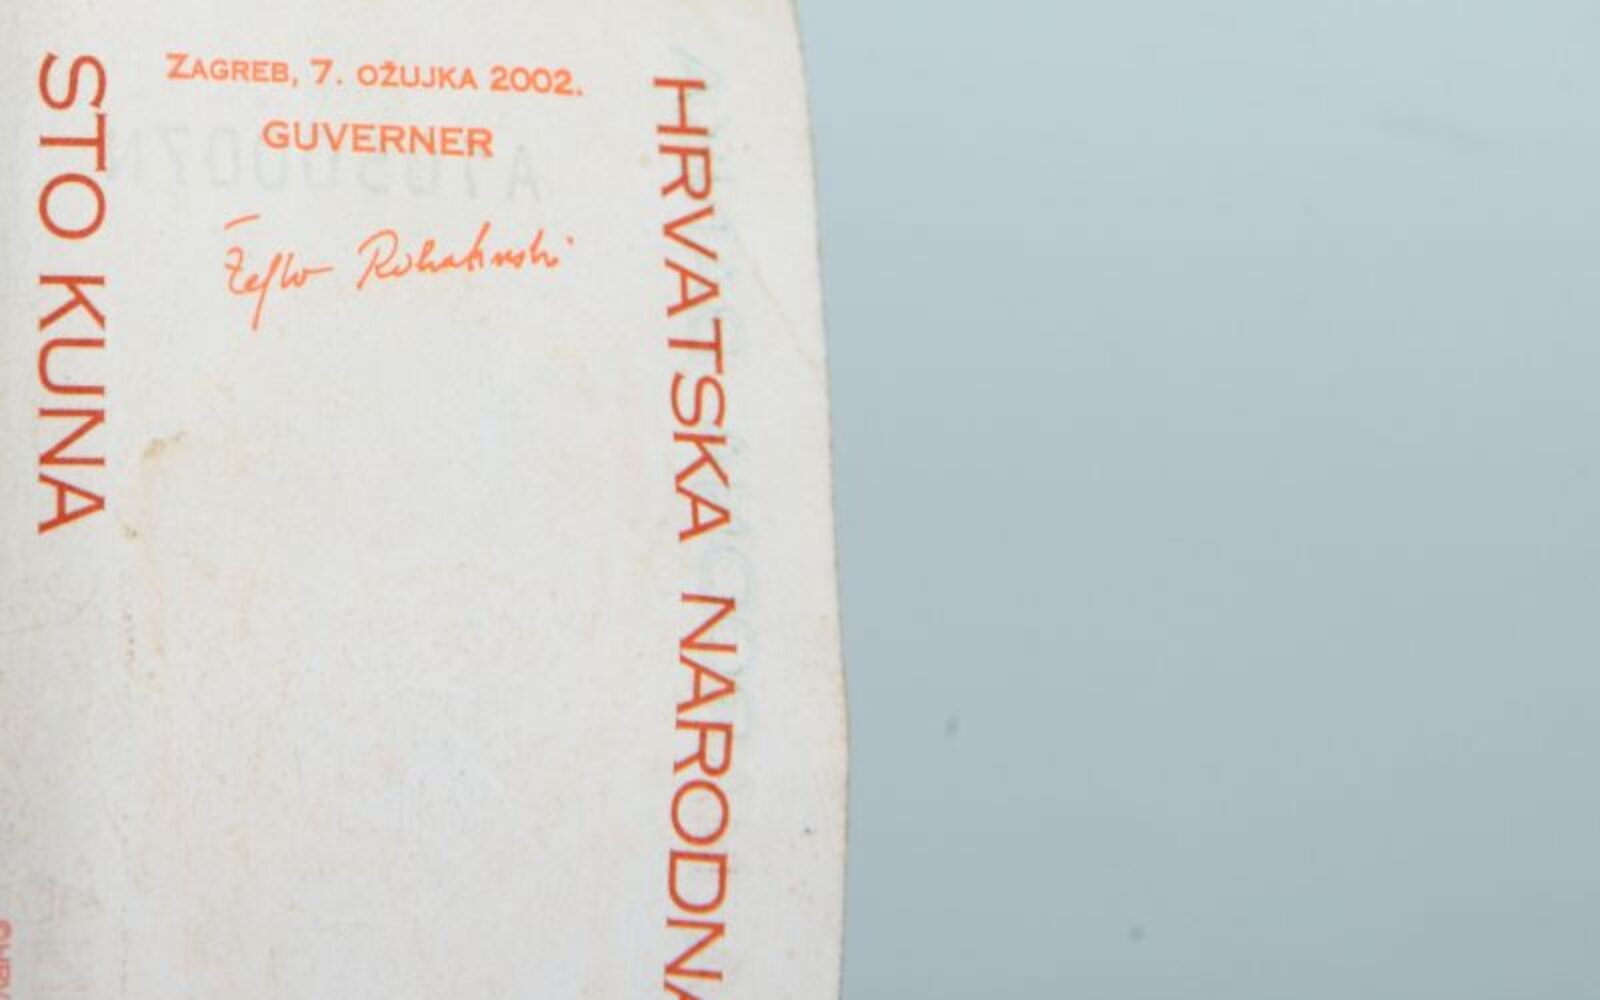 STO KUNA
ZAGREB, 7. OŽUJKA 2002.
GUVERNER
Željko Rohatinski
HRVATSKA NARODNA